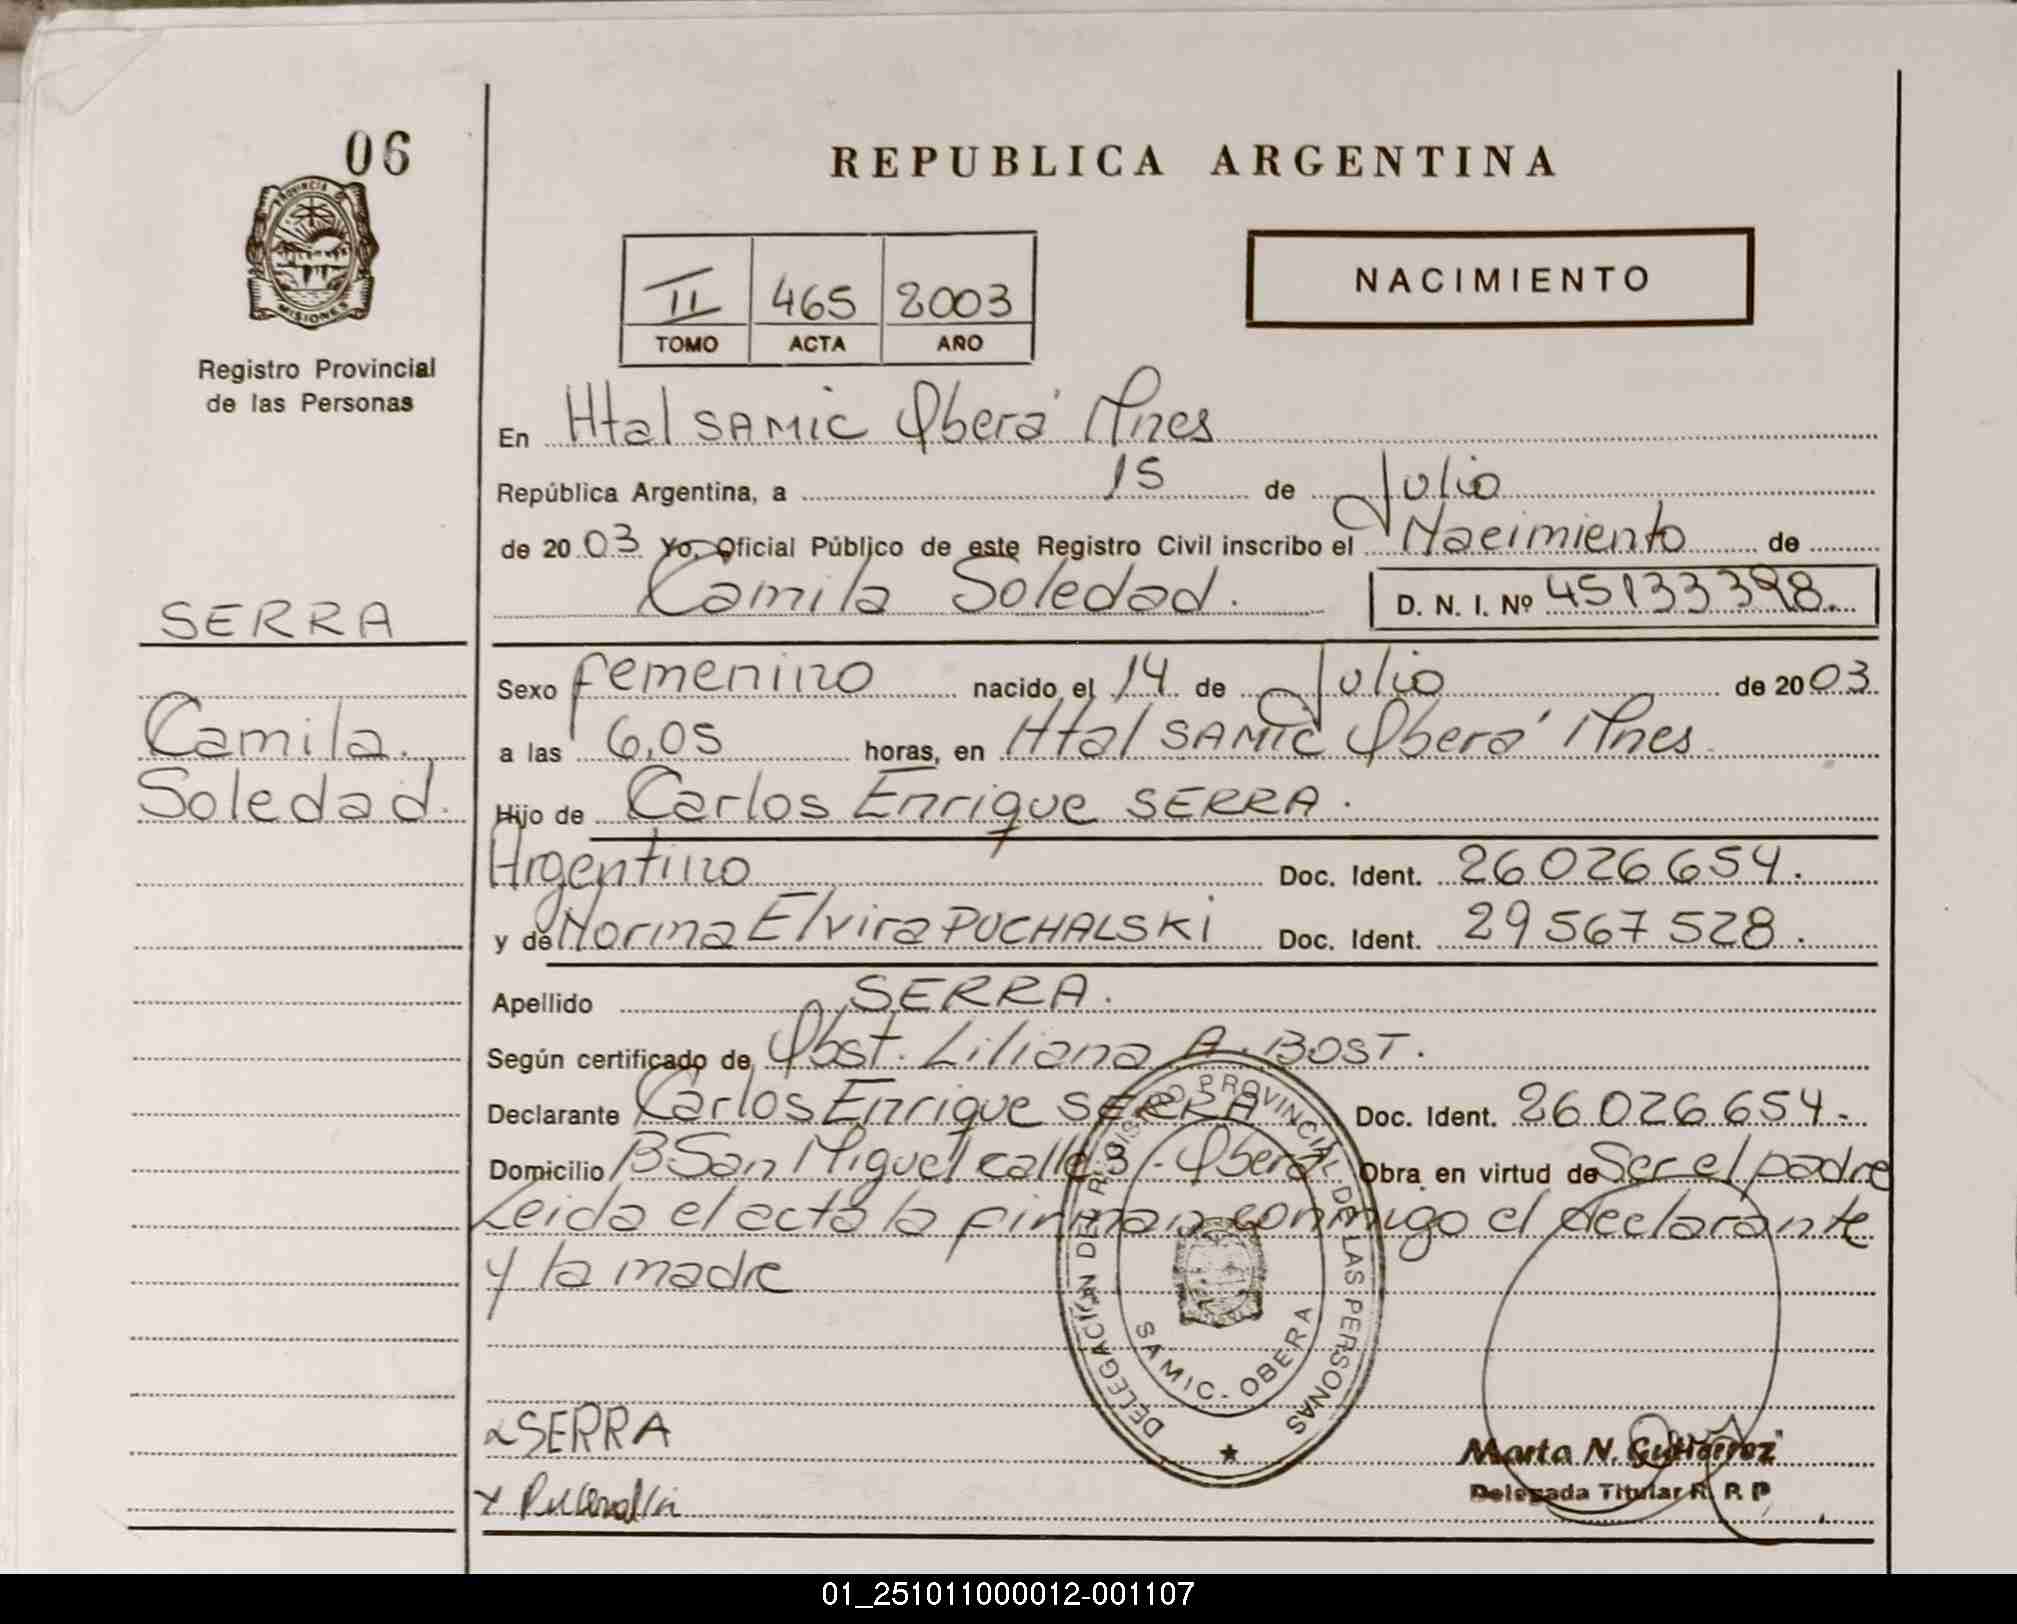 06
PROVINCIA DE
MISIONES
Registro Provincial
de las Personas
SERRA
Camila
Soledad.
REPUBLICA ARGENTINA
NACIMIENTO
II 465 2003
TOMO ACTA AÑO
En Htal SAMIC Oberá Mnes
República Argentina, a 15 de Julio
de 2003 Yo, Oficial Público de este Registro Civil inscribo el Nacimiento de
Camila Soledad. D. N. I. Nº 45133398.
Sexo femenino nacido el 14 de Julio de 2003
a las 6,05 horas, en Htal SAMIC Oberá Mnes
Hijo de Carlos Enrique SERRA.
Argentino Doc. Ident. 26026654.
y de Norma Elvira PUCHALSKI Doc. Ident. 29567528.
Apellido SERRA.
Según certificado de Obst. Liliana A. BOST.
Declarante Carlos Enrique SERRA Doc. Ident. 26026654.-
Domicilio B San Miguel calle 3/- Oberá Obra en virtud de Ser el padre
Leida el acta la firman conmigo el declarante
y la madre
DELEGACIÓN DEL REGISTRO PROVINCIAL DE LAS PERSONAS
SAMIC - OBERA
SERRA
Marta N. Gutierrez
Delegada Titular R. P. P
01_251011000012-001107